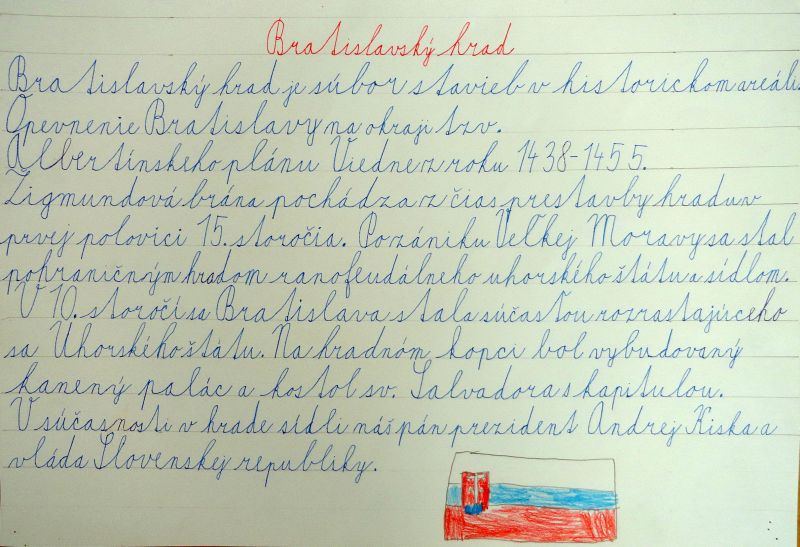 Bratislavský hrad
Bratislavský hrad je súbor stavieb v historickom areáli.
Opevnenie Bratislavy na okraji tzv.
Albertínskeho plánu Viedne z roku 1438-1455.
Žigmundová brána pochádza z čias prestavby hradu v
prvej polovici 15. storočia. Po zániku Veľkej Moravy sa stal
pohraničným hradom ranofeudálneho uhorského štátu a sídlom.
V 10. storočí sa Bratislava stala súčasťou rozrastajúceho
sa Uhorského štátu. Na hradnóm kopci bol vybudovaný
kanený palác a kostol sv. Salvadora s kapitulou.
V súčasnosti v hrade sídli náš pán prezident Andrej Kiska a
vláda Slovenskej republiky.